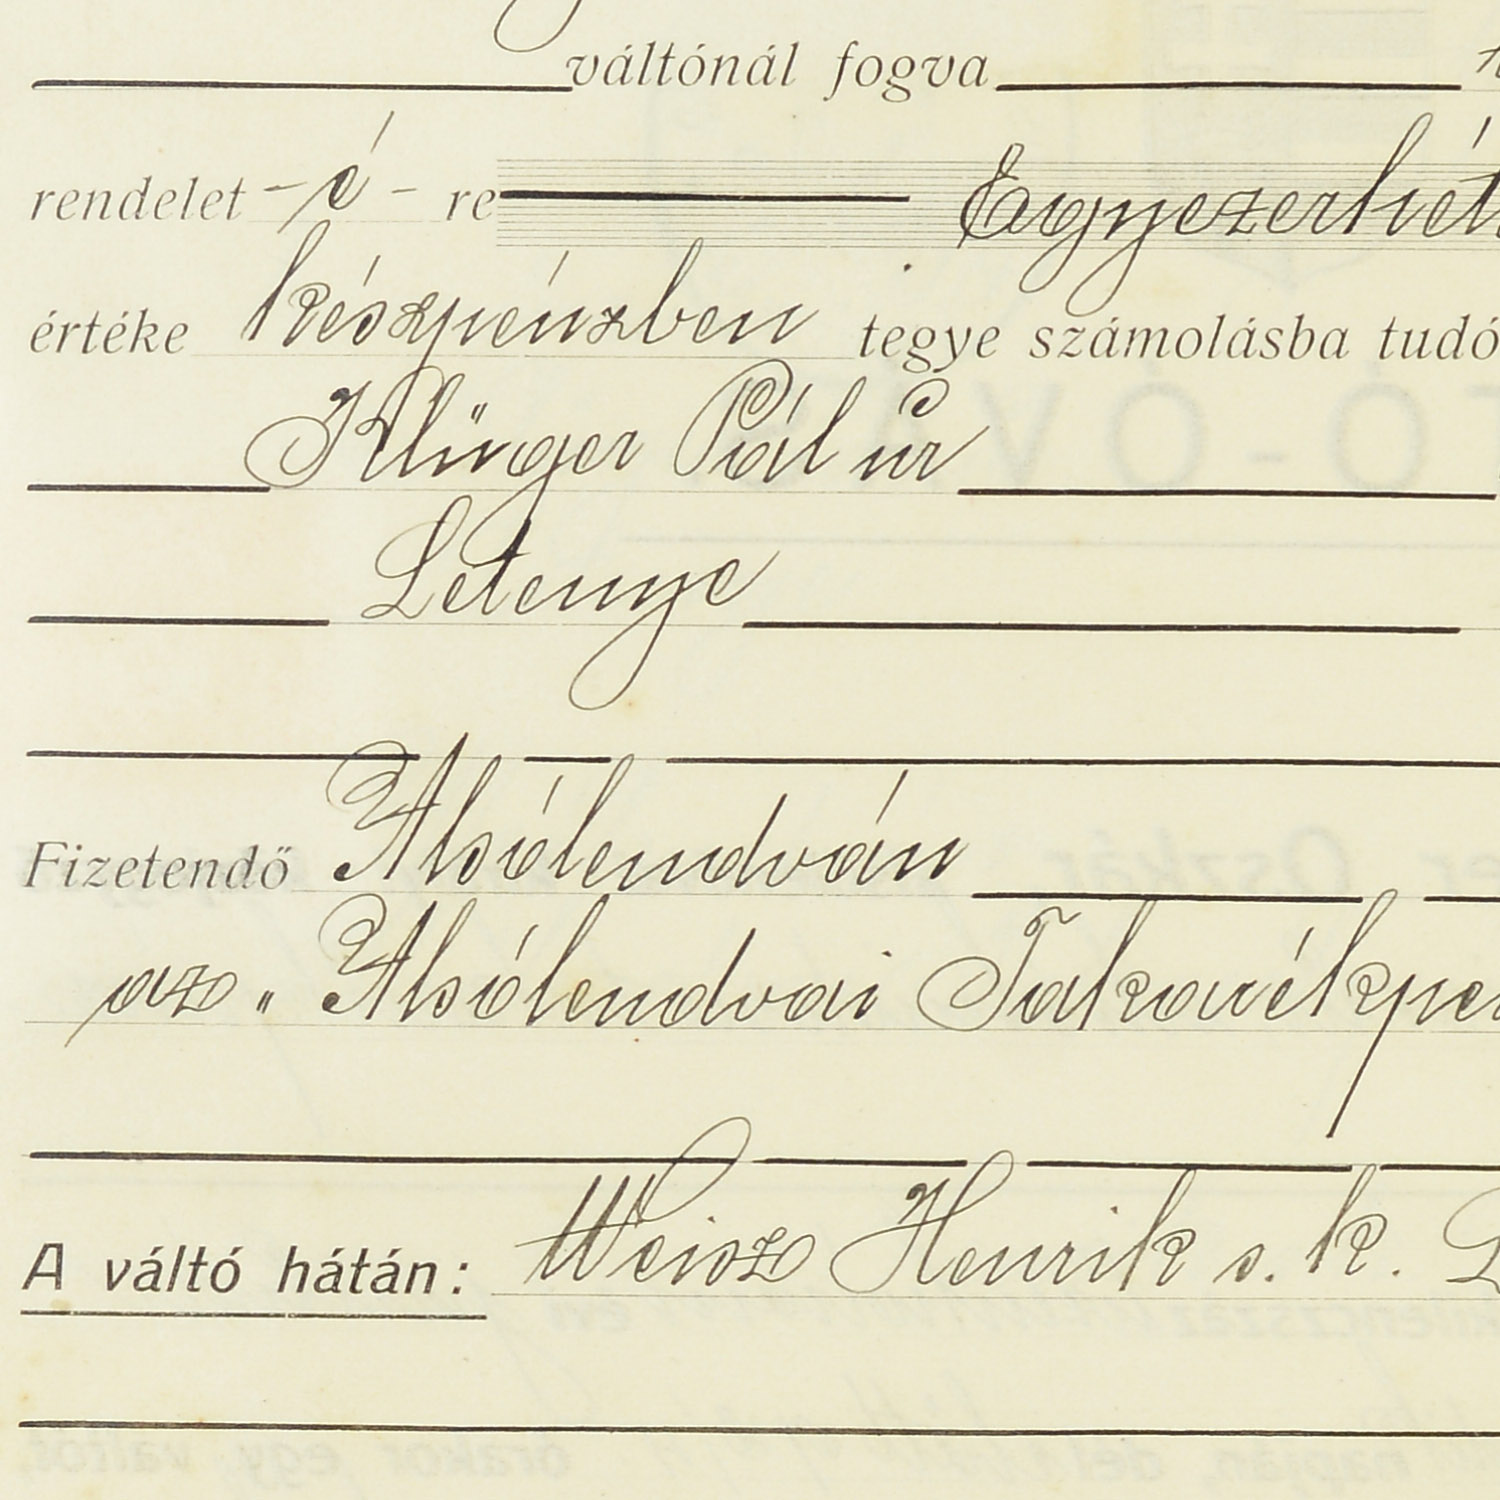 váltónál fogva
rendelet - é - re Egyezerhét
értéke készpénzben tegye számolásba tudó
Klüger Pál úr
Letenye
Fizetendő Alsólendván
az „Alsólendvai Takarékpén
A váltó hátán: Weisz Henrik s. k.